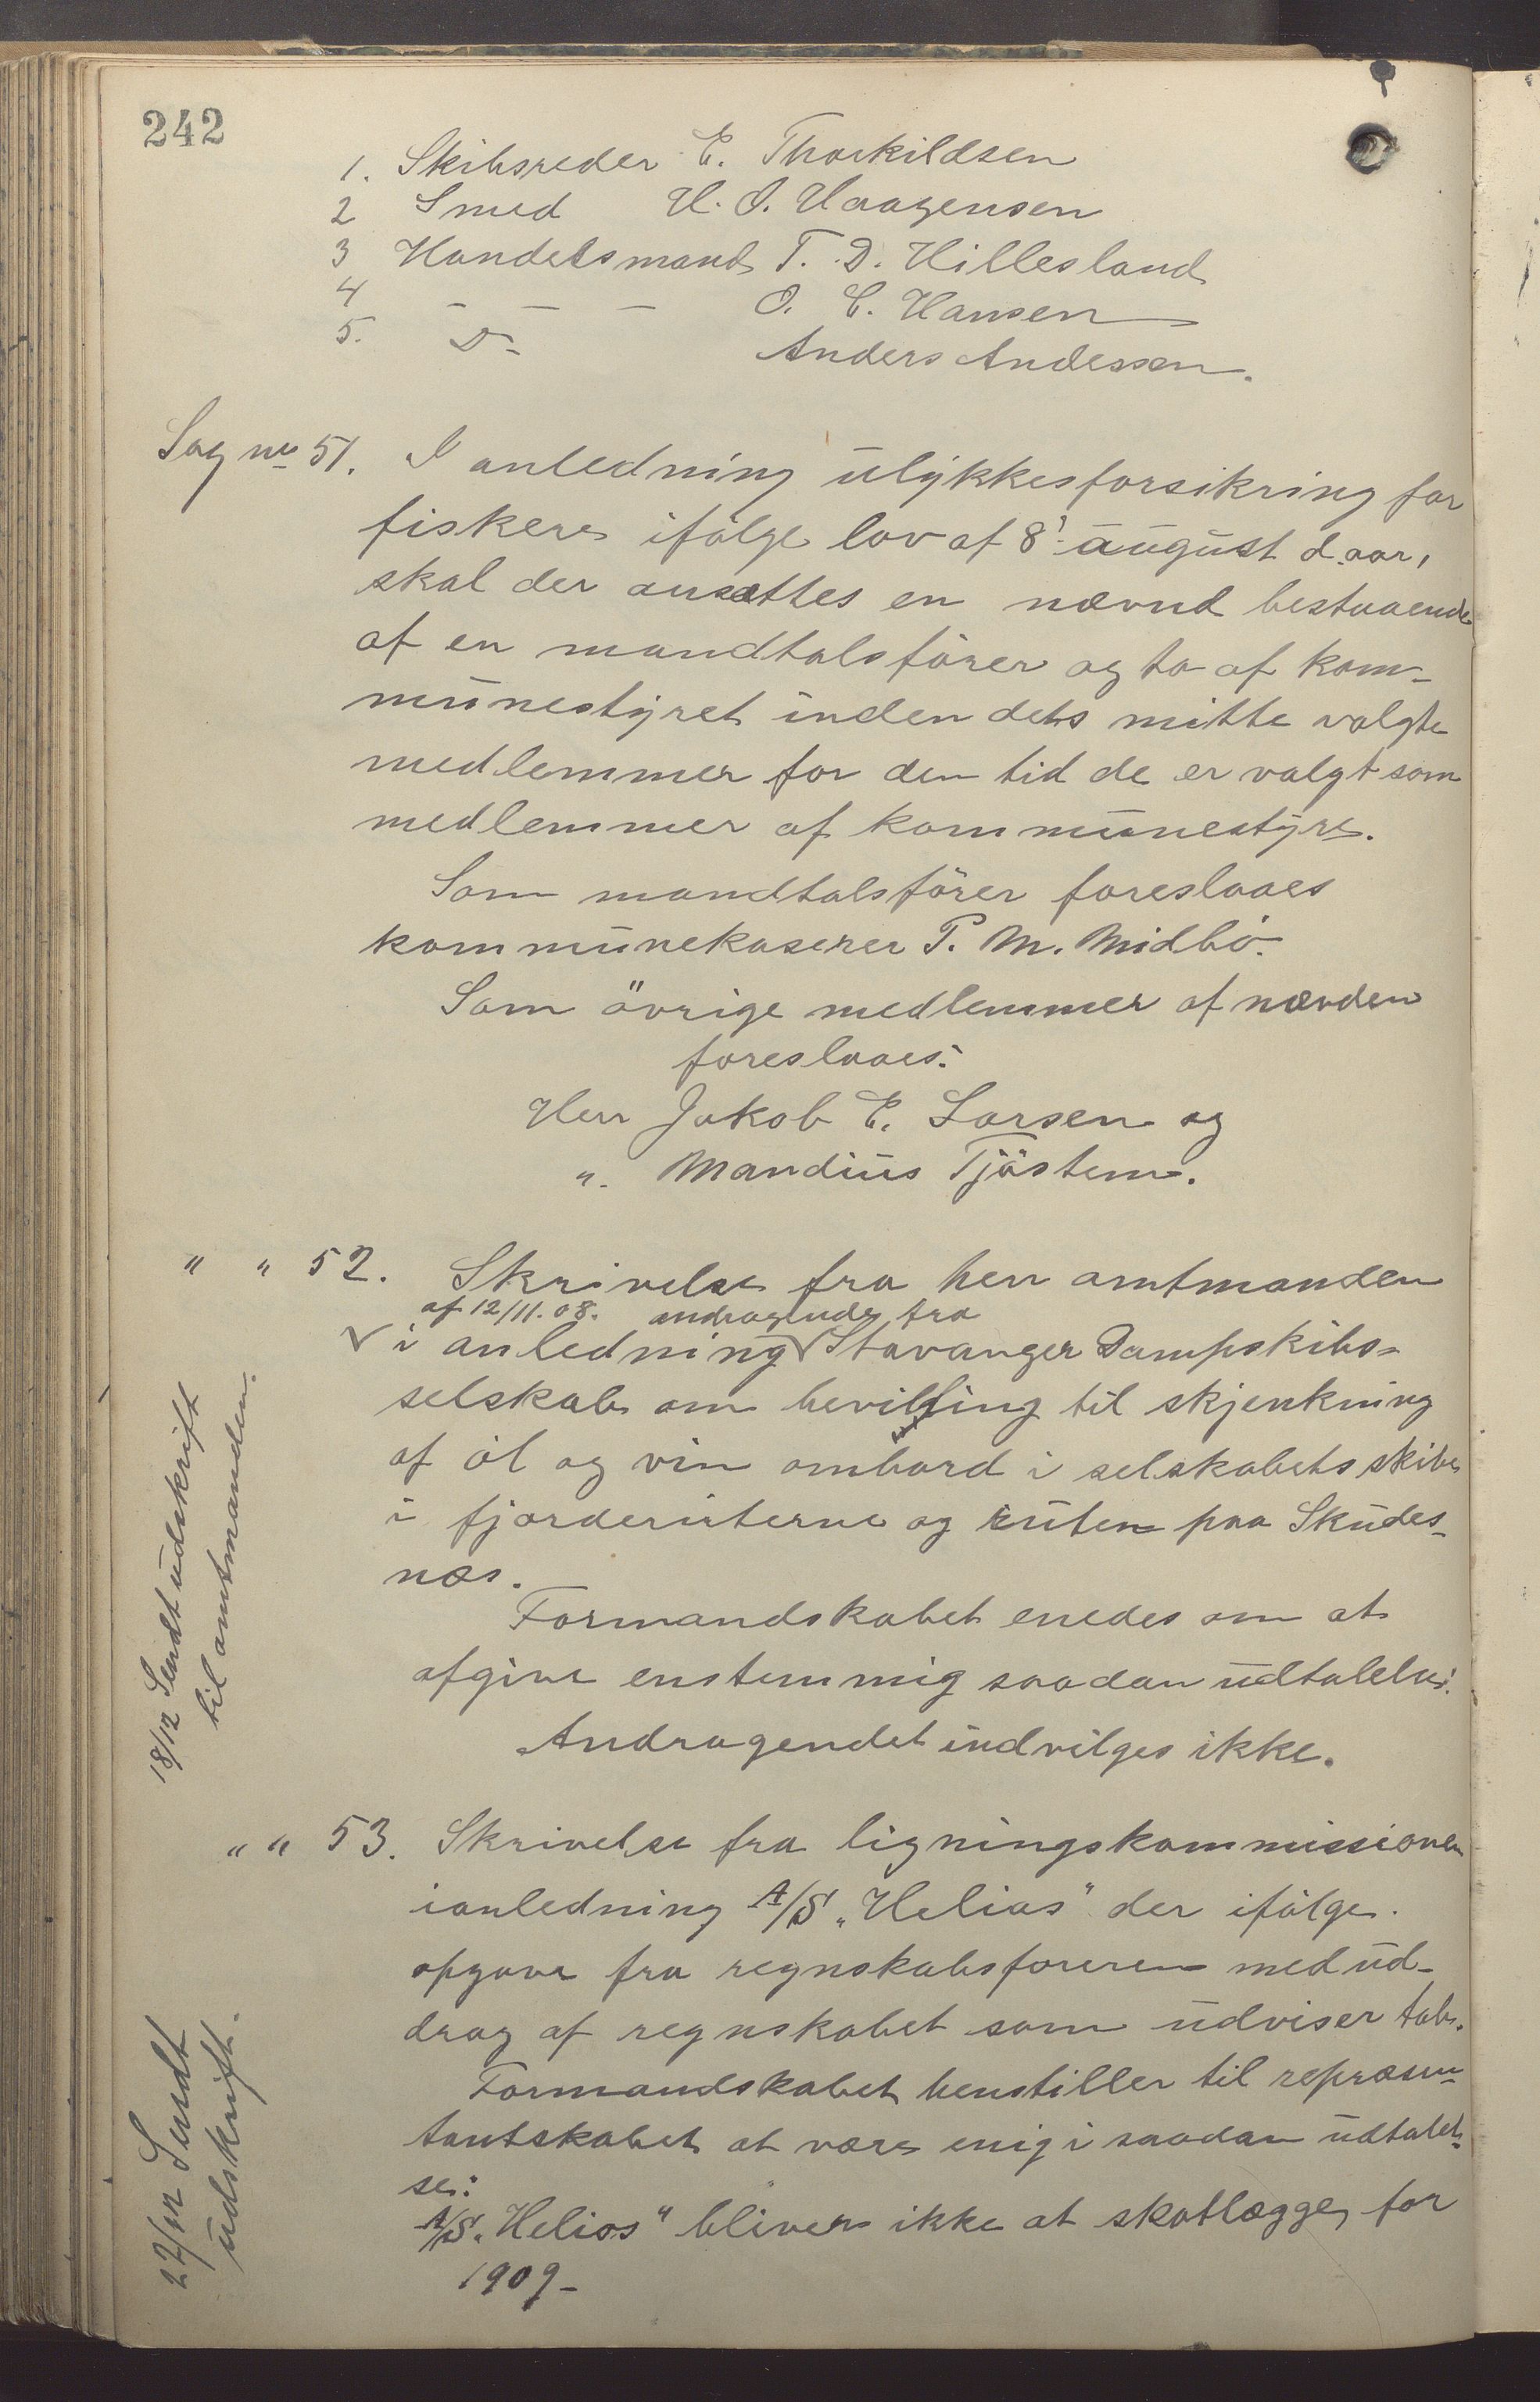 242
1. Skibsreder E. Thorkildsen
2 Smed H. O. Haagensen
3 Handelsmand T. D. Hillesland
4 – – – O. C. Hansen
5. D- Anders Andessen.
Sag no 51. I anledning ulykkesforsikring for
fiskere ifölge lov af 8' august d. aar,
skal der ansættes en nævnd bestaaende
af en mandtalsförer og to af kom-
munestyret inden dets mitte valgte
medlemmer for den tid de er valgt som
medlemmer af kommunestyre.
Som mandtalsförer foreslaaes
kommunekaserer P. M. Midbö.
Som övrige medlemmer af nævden
foreslaaes:
Herr Jakob E. Larsen og
". Mandius Tjöstem.
" " 52. Skrivelse fra herr amtmanden
af 12/11.08. andragende fra
√ i anledning √ Stavanger Dampskibs-
selskab om bevilling til skjenkning
af öl og vin ombord i selskabets skibe
i fjorderuterne og ruten paa Skudes-
næs.
Formandskabet enedes om at
afgive enstemmig saadan udtalelse:
Andragendet indvilges ikke.
18/12 Sendt udskrift
til amtmanden.
" " 53. Skrivelse fra ligningskommissionen
ianledning A/S „Helios" der ifölge
opgave fra regnskabsföreren med ud-
drag af regnskabet som udviser tab.
Formandskabet henstiller til repræsen-
tantskabet at være enig i saadan udtalel-
se:
A/S „Helios" bliver ikke at skatlægge for
1909-
22/12 Sendt
udskrift.